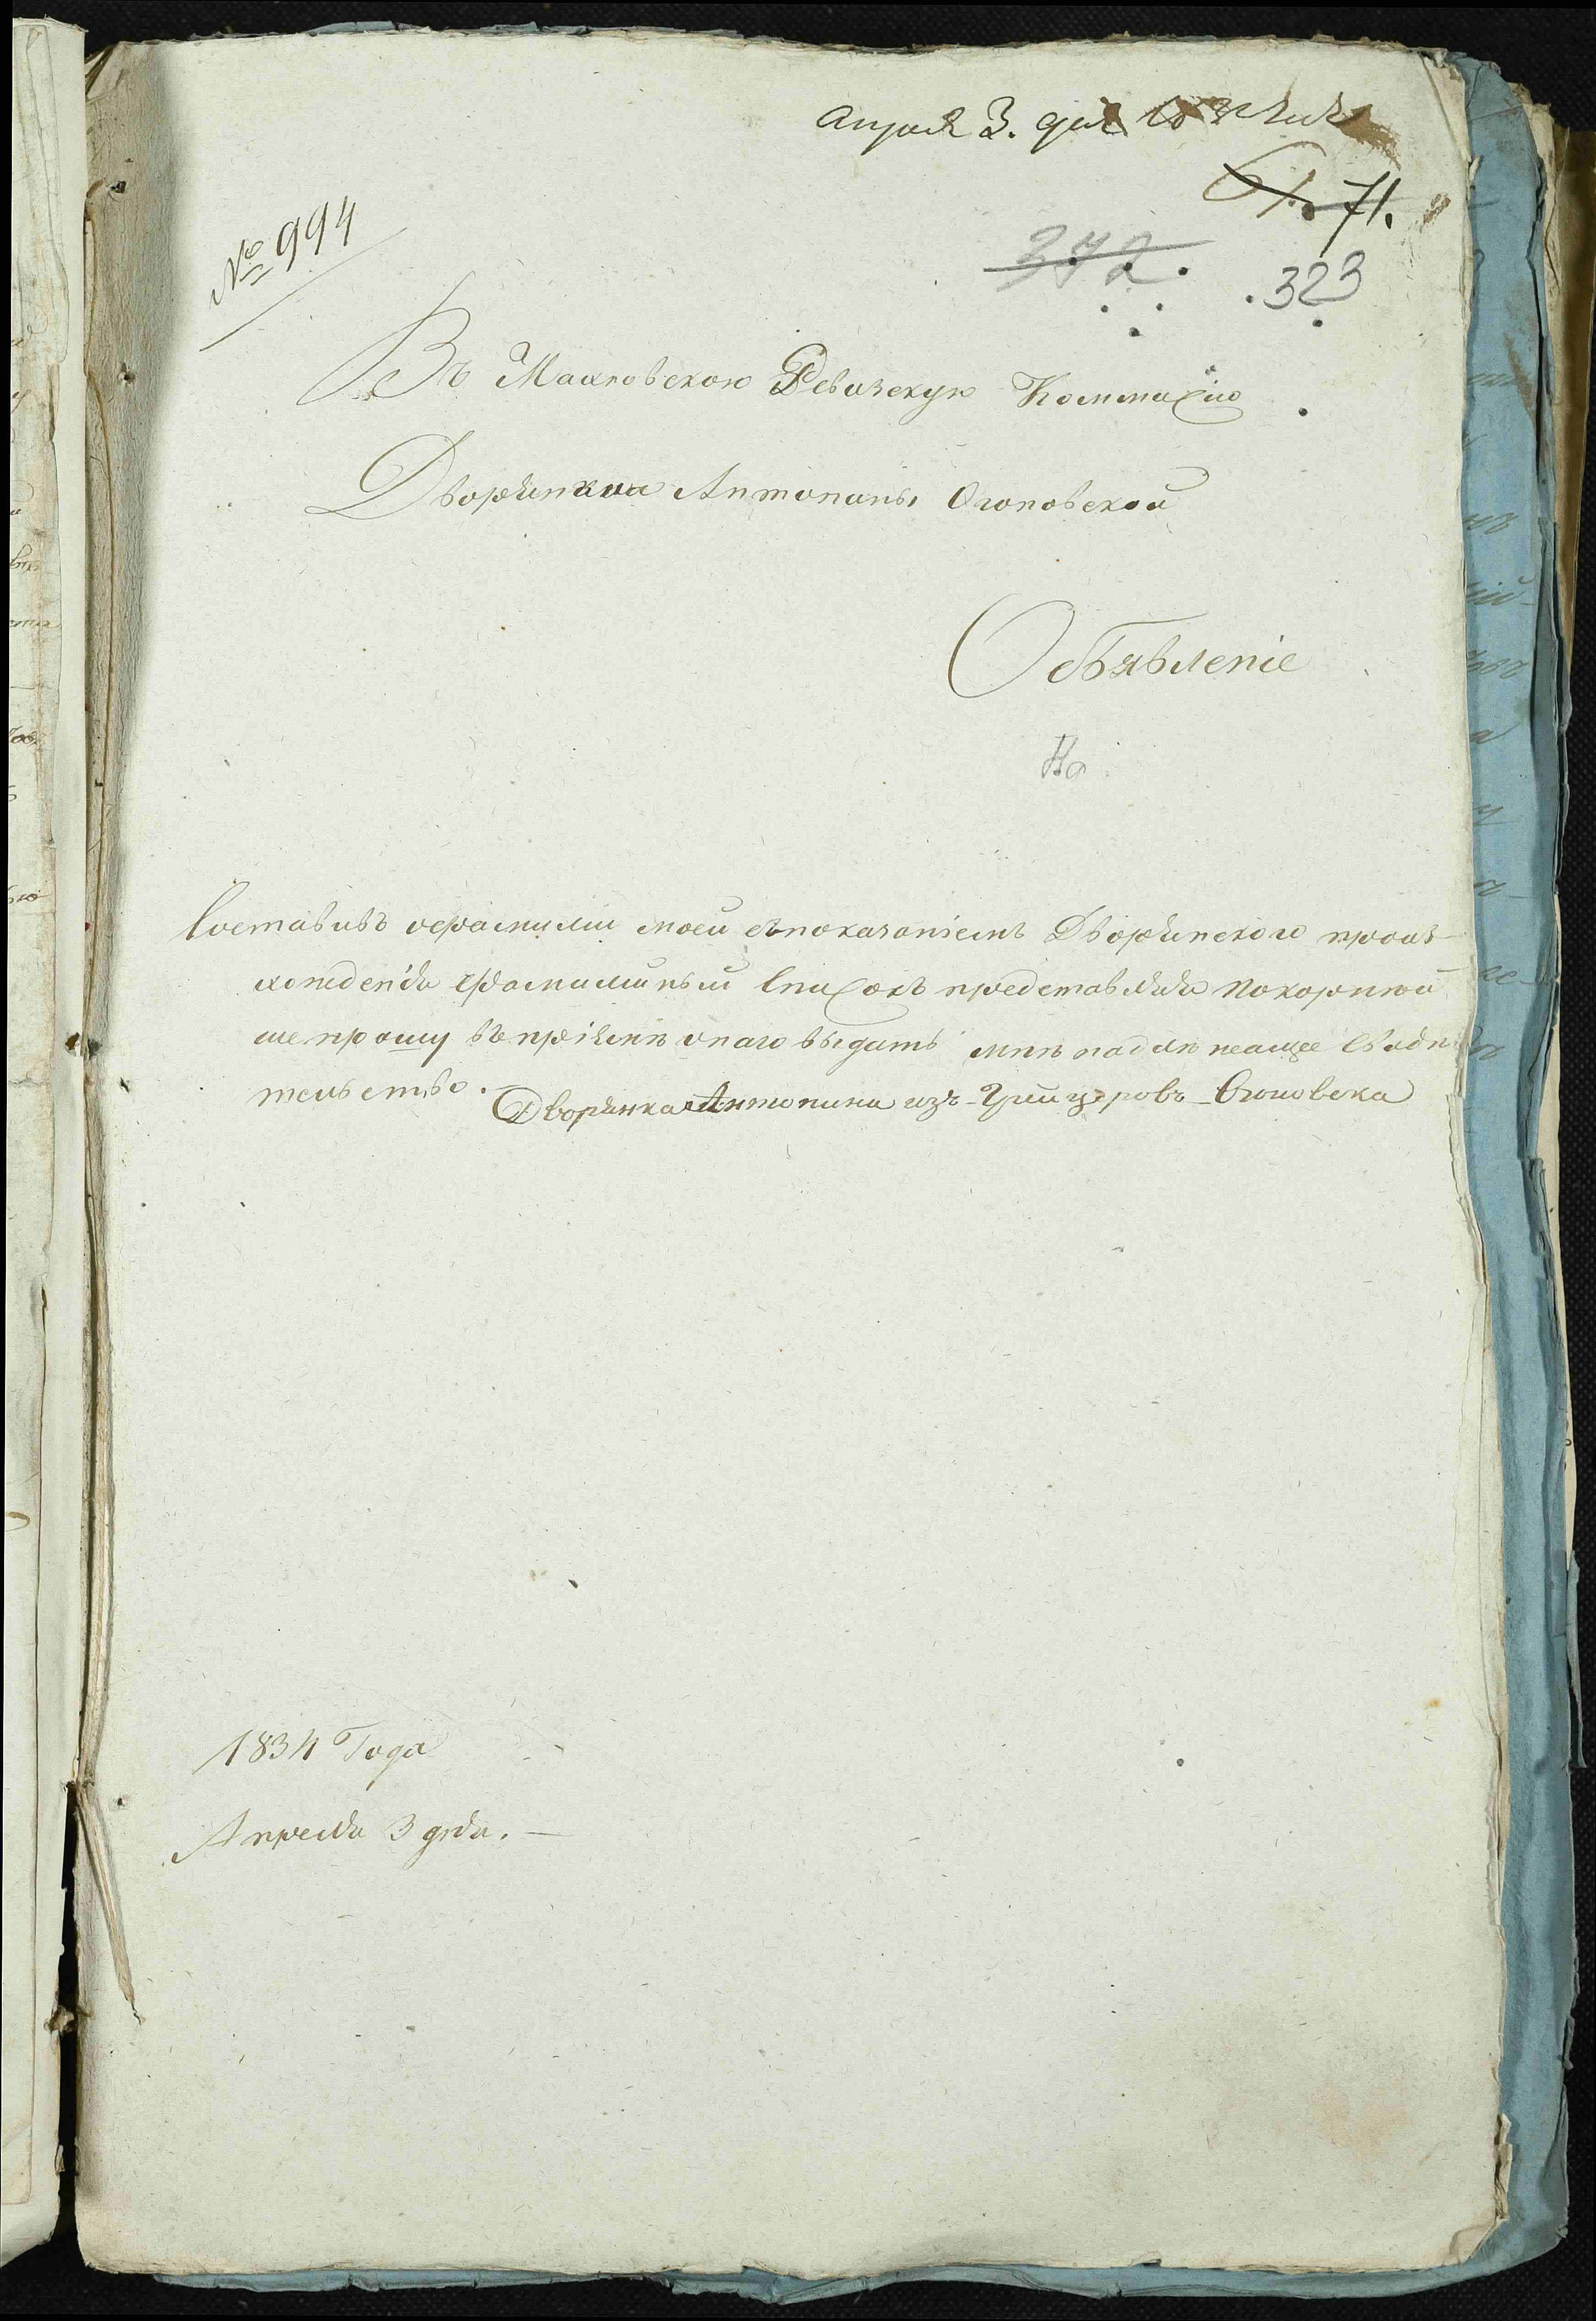 Апреля 3. дня 1834
61. 71.
№ 994
372. 323
Въ Махновскою Ревизскую Коммисію
Дворянкои Антонины Огоновской
Объявленіе
На
Составивъ о фамиліи моей съ показаніемъ Дворянского проис-
хожденія фамилійный Списокъ представляя Покорнѣй
ше прошу въ пріемѣ онаго выдать мнѣ надлѣжащее Свидѣ
тельство.
Дворянка Антонина изъ Огоновска
1834 Года
Апреля 3 дня. —